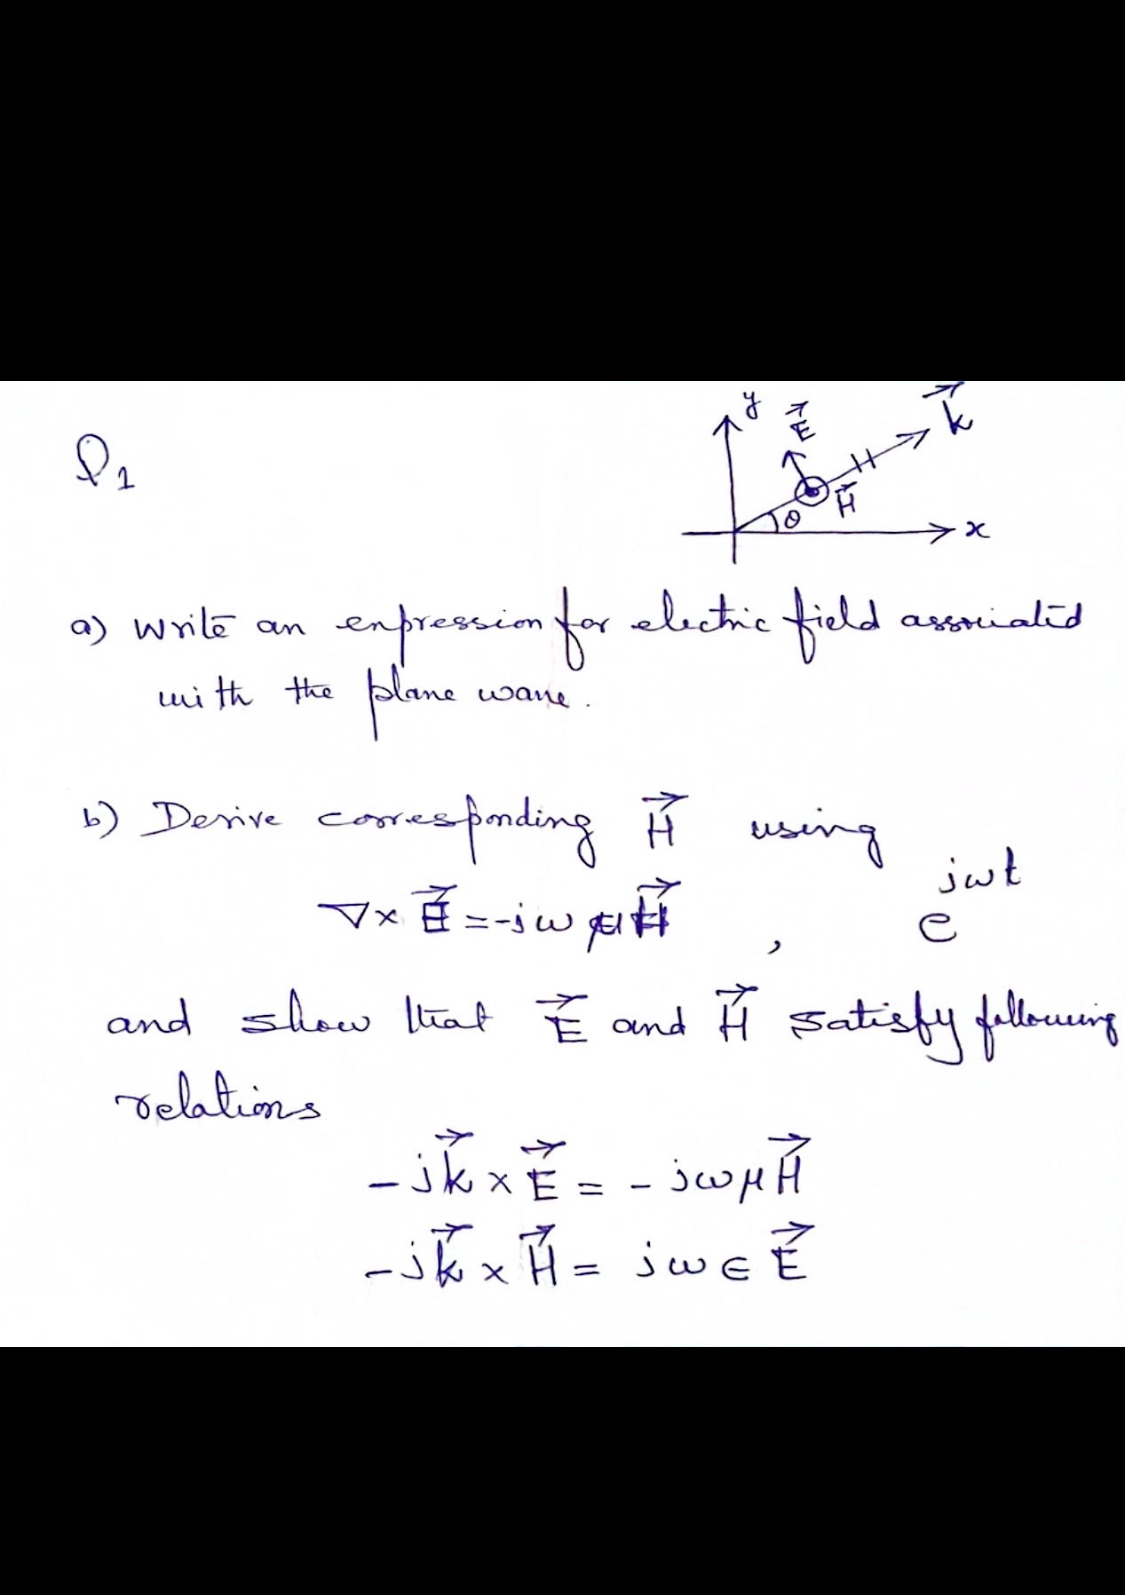 Q1
y
E⃗
k⃗
H⃗
θ
x
a) Write an expression for electric field associated
with the plane wave.
b) Derive corresponding H⃗ using
∇×E⃗ = -jωμH⃗ , e^jωt
and show that E⃗ and H⃗ satisfy following
relations
-jk⃗×E⃗ = -jωμH⃗
-jk⃗×H⃗ = jω∈E⃗